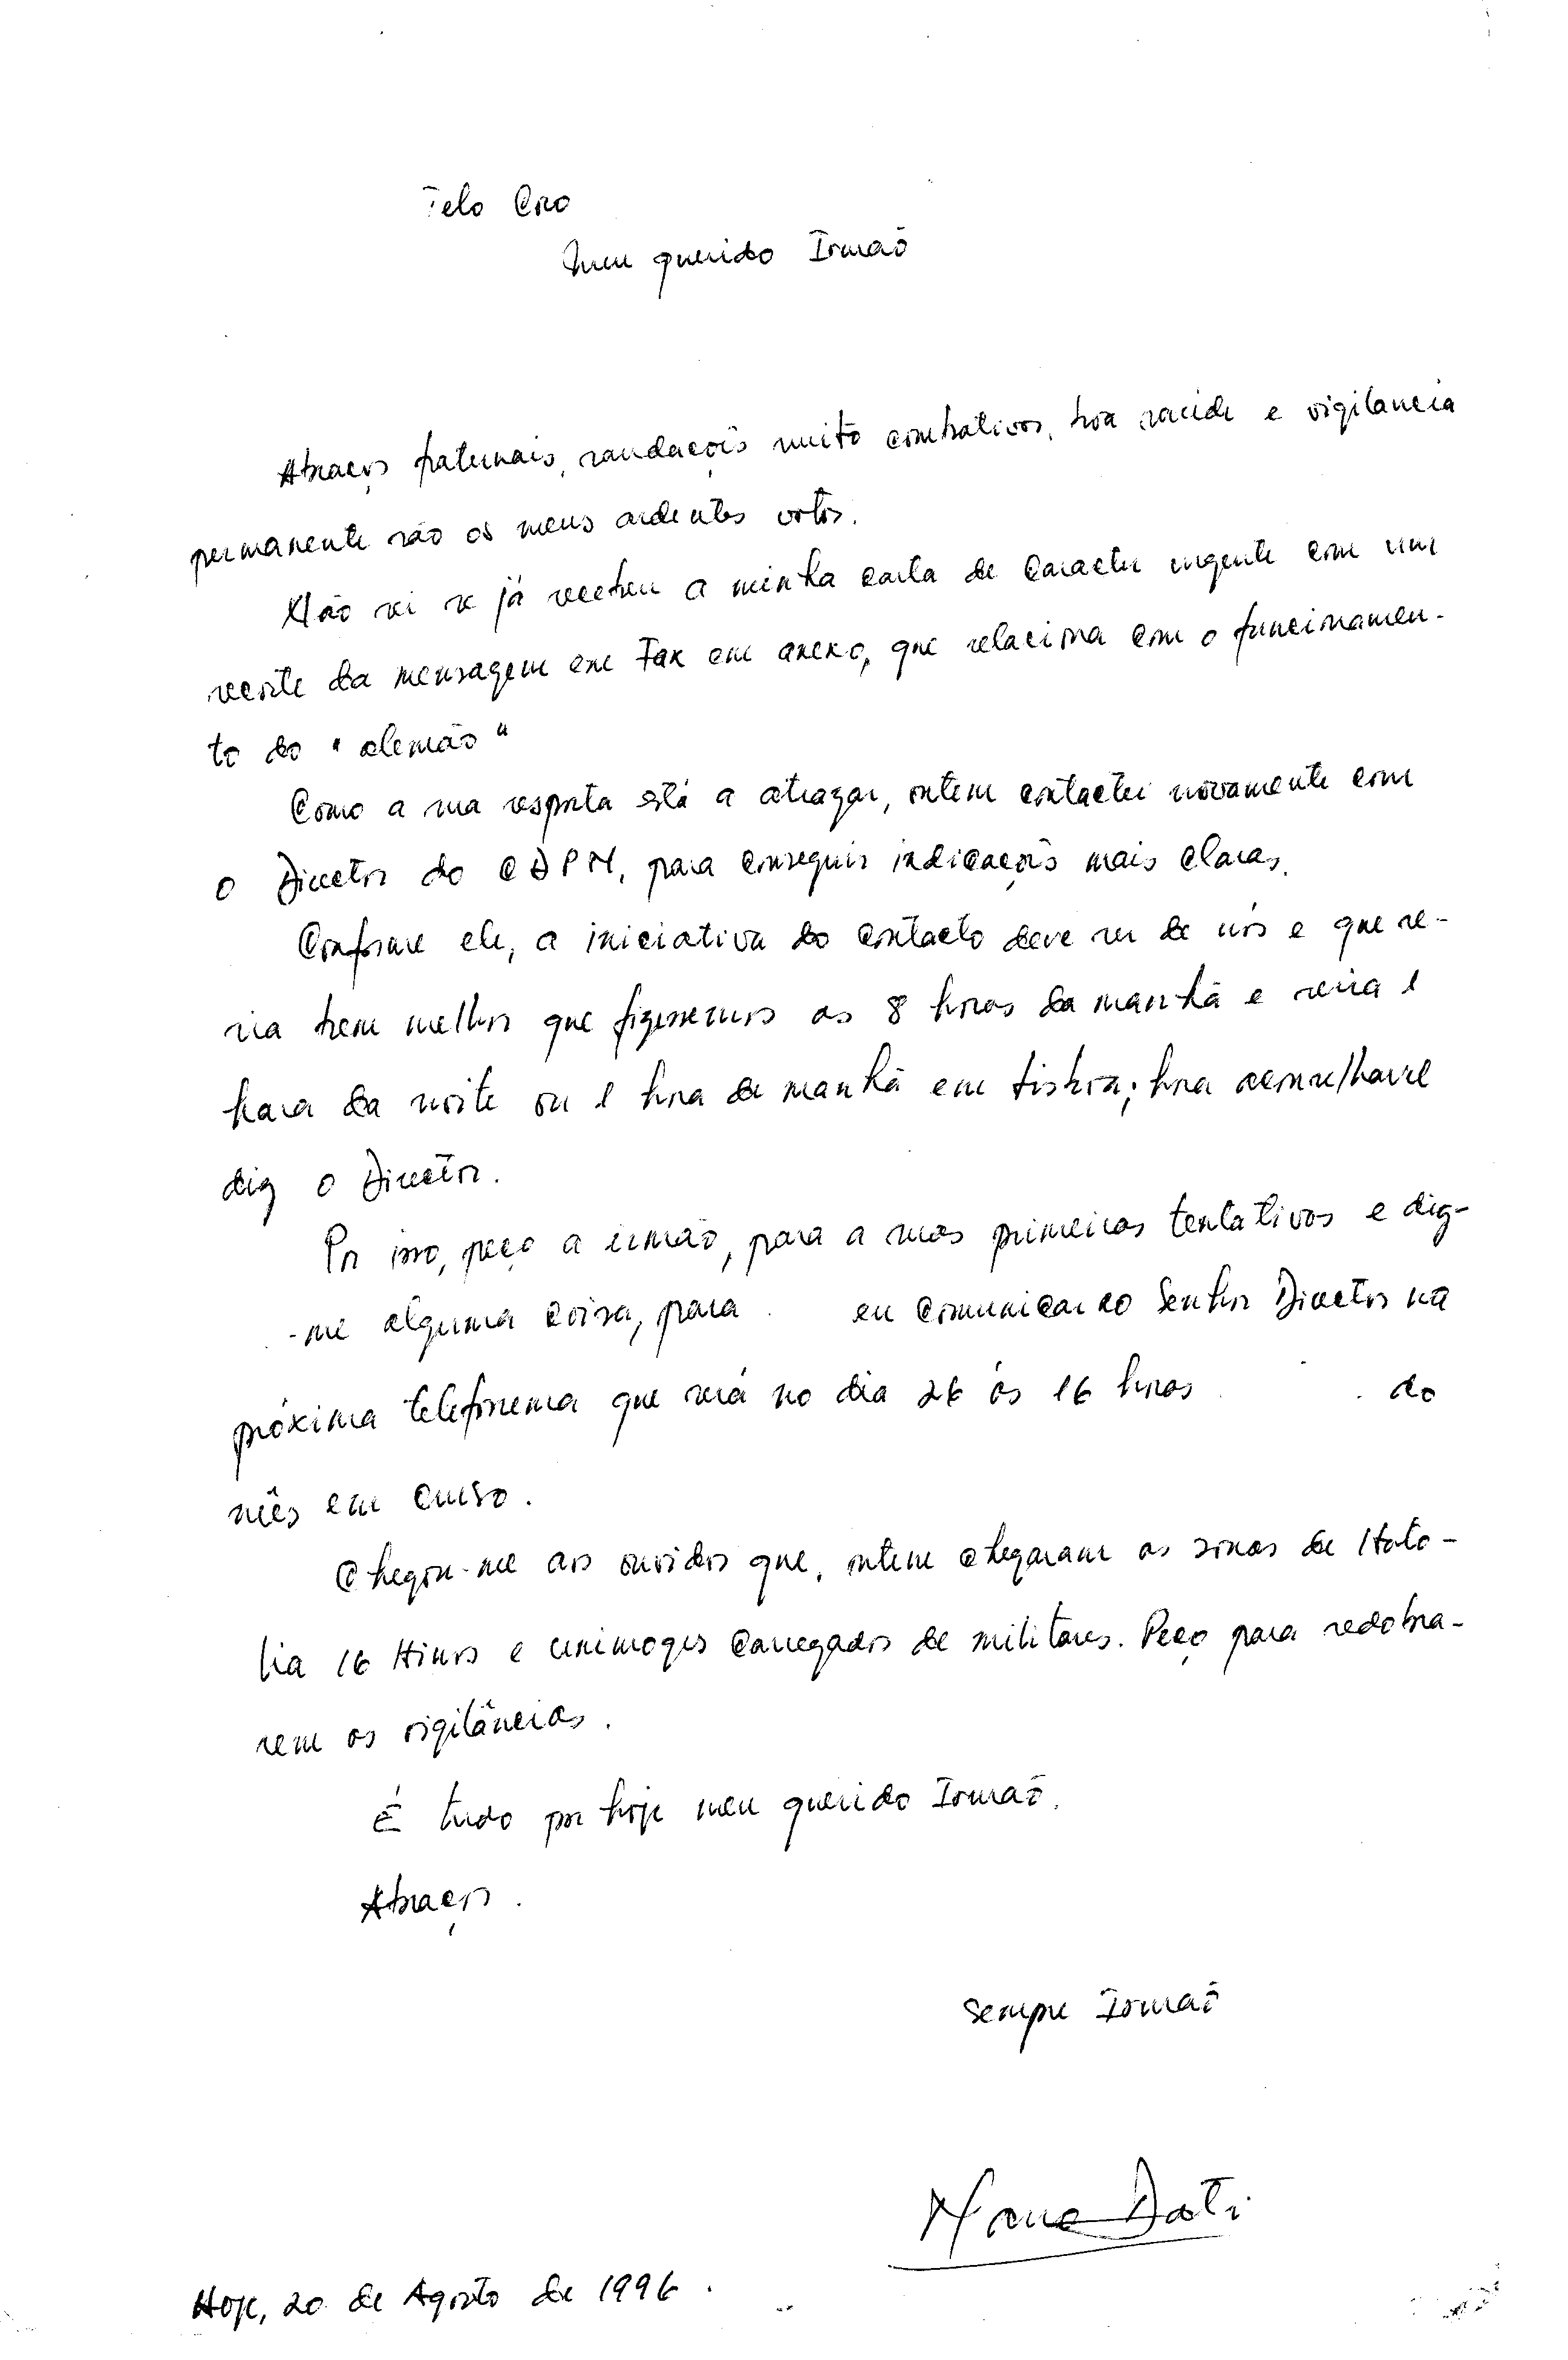 Telo Cno
Meu querido Irmaõ
Abraços fraternais, saudaçoĩs muito combativos, boa saúde e vigilancia
permanente são os meus ardentes votos.
Não sei se já recebeu a minha carta de caracter urgente com um
recorte da mensagem em Fax em anexo, que relaciona com o funcionamen-
to do "alemão"
Como a sua resposta está a atrazar, ontem contactei novamente com
o Director do CDPM, para conseguir indicaçoĩs mais claras.
Conforme ele, a iniciativa do contacto deve ser de nós e que se-
ria bem melhor que fizessemos as 8 horas da manhã e seria 1
hora da noite ou 1 hora de manhã em Lisboa; hora aconselhavel
diz o Director.
Por isso, peço a irmão, para a suas primeiras tentativos e diz-
-me alguma coisa, para eu comunicar ao Senhor Director na
próxima telefonema que será no dia 26 ás 16 horas do
mês em curso.
Chegou-me aos ouvidos que, ontem chegaram as zonas de Hato-
lia 16 Hinos e unimoges carregados de militares. Peço para redobra-
rem as vigilâncias.
É tudo por hoje meu querido Irmaõ.
Abraços.
Sempre Irmaõ
Hoje, 20 de Agosto de 1996.